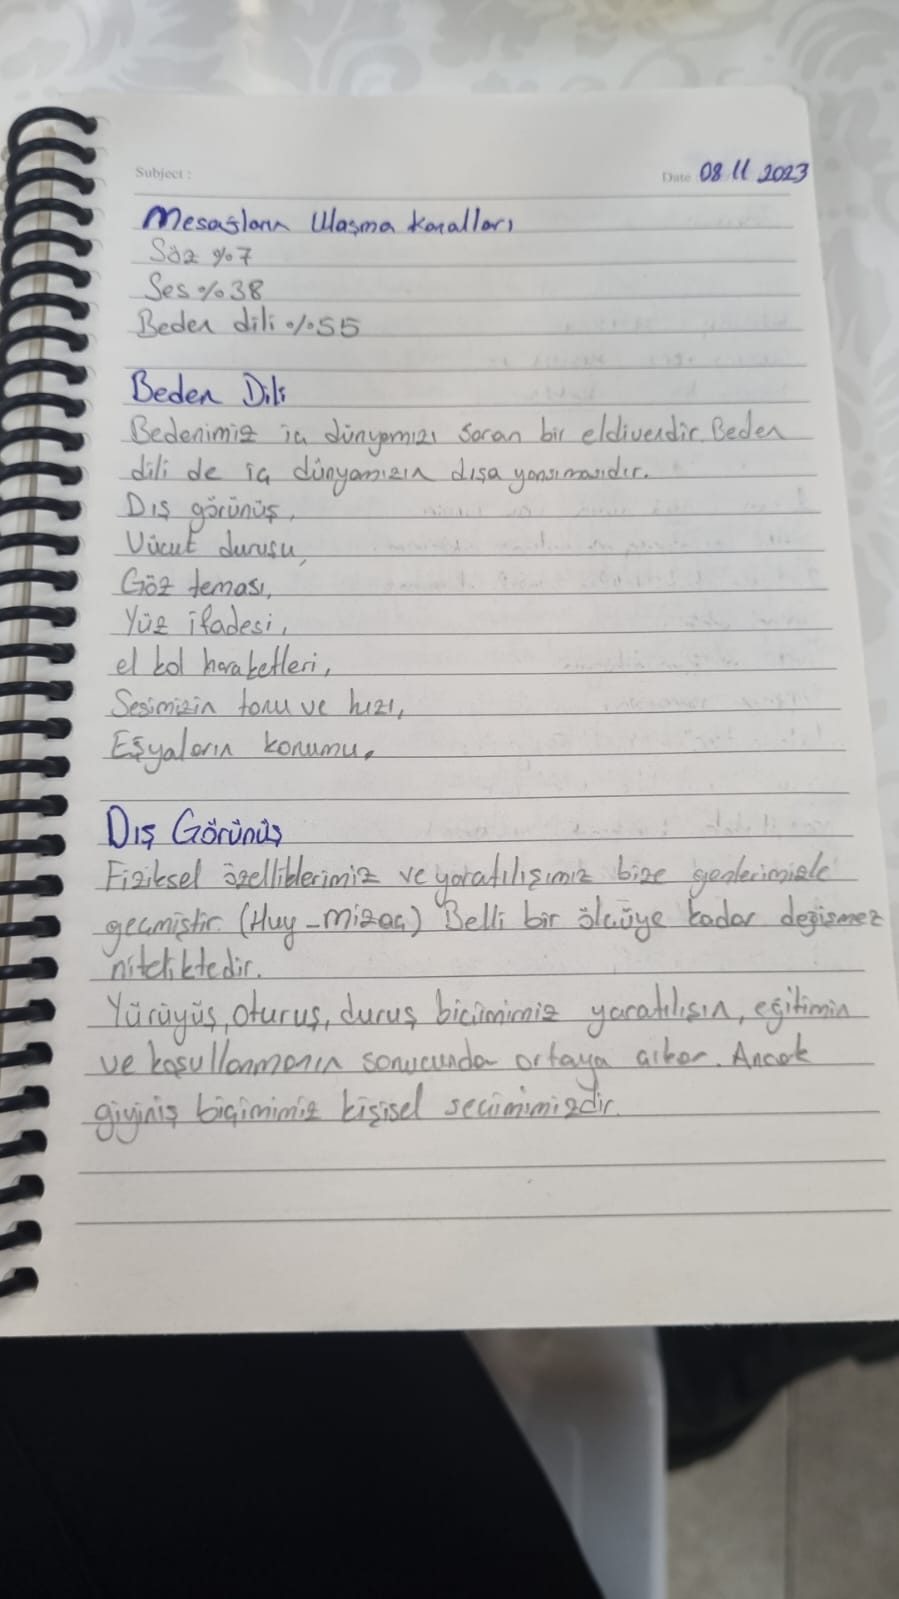 Subject :
Date 08 11 2023
Mesajların Ulaşma Kanalları
Söz %7
Ses %38
Beden dili %55
Beden Dili
Bedenimiz iç dünyamızı saran bir eldivendir. Beden
dili de iç dünyamızın dışa yansımasıdır.
Dış görünüş,
Vücut duruşu,
Göz teması,
Yüz ifadesi,
el kol haraketleri,
Sesimizin tonu ve hızı,
Eşyaların konumu.
Dış Görünüş
Fiziksel özelliklerimiz ve yaratılışımız bize genlerimizle
geçmiştir. (Huy-Mizaç) Belli bir ölçüye kadar değişmez
niteliktedir.
Yürüyüş, oturuş, duruş biçimimiz yaratılışın, eğitimin
ve koşullanmanın sonucunda ortaya çıkar. Ancak
giyiniş biçimimiz kişisel seçimimizdir.